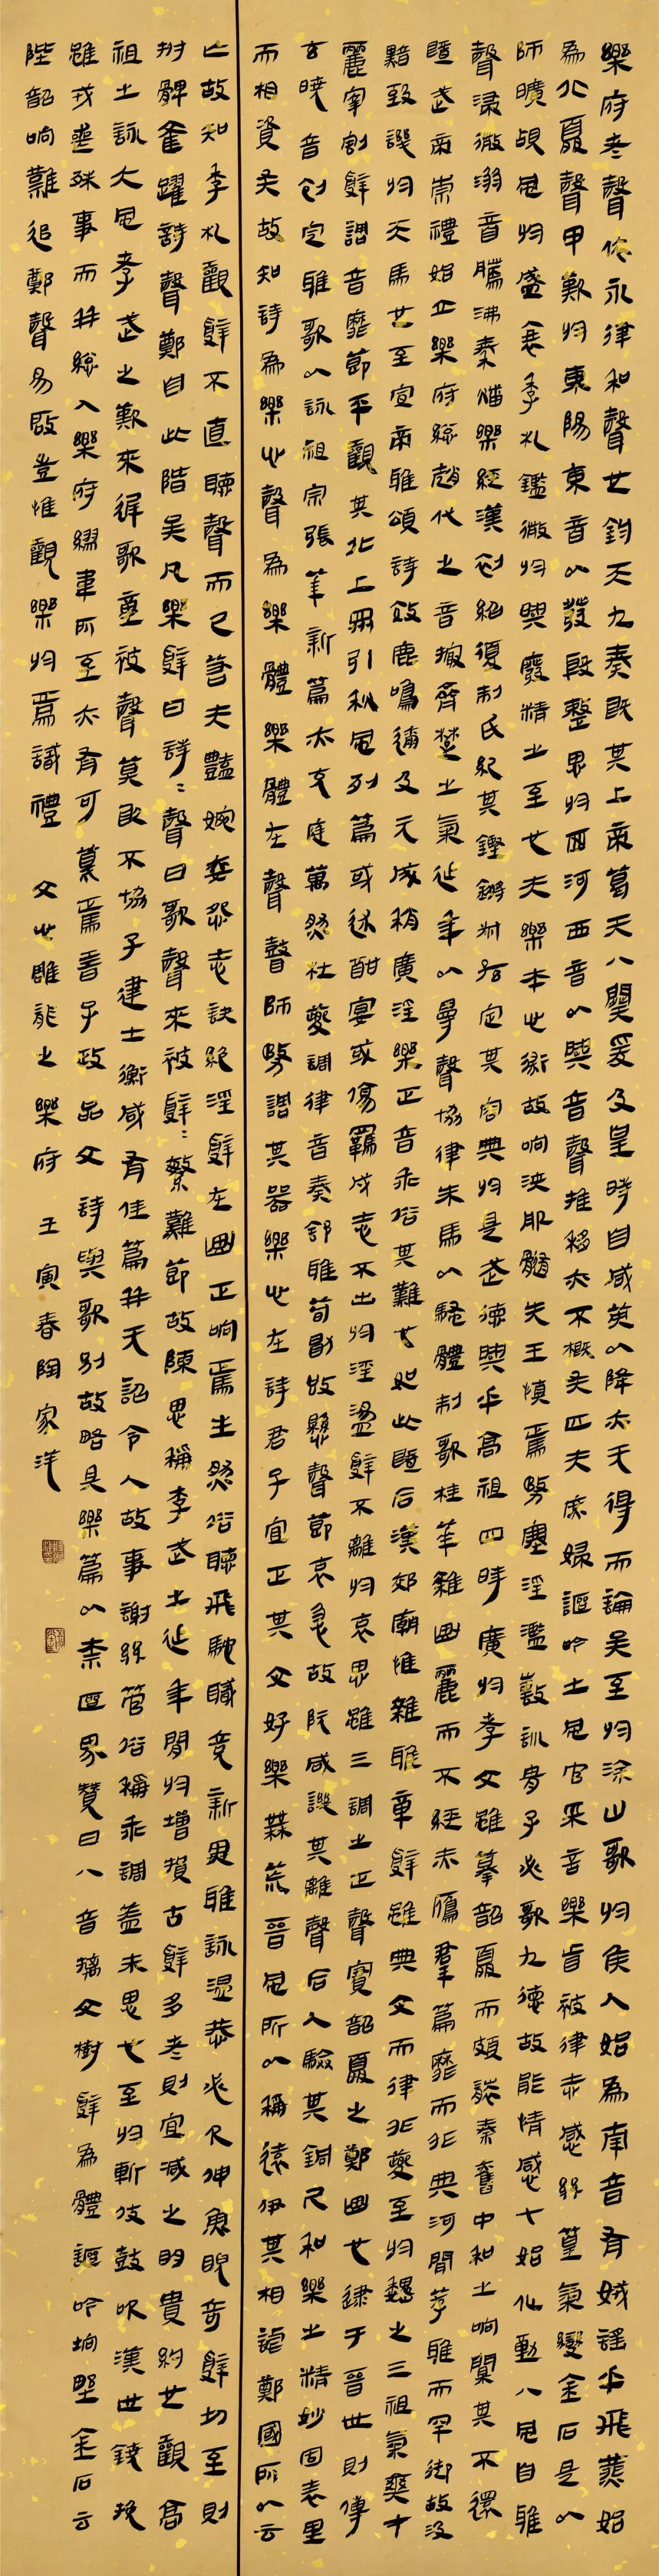 樂府者聲依永律和聲也鈞天九奏既其上帝葛天八闋爰及皇時自咸英以降亦无得而論矣至於涂山歌於候人始為南音有娀謠乎飛燕始
為北夏聲甲歎於東陽東音以發殷整思於西河西音以興音聲推移亦不概矣匹夫庶婦謳吟土風官采言樂盲被律志感絲篁氣變金石是以
師曠覘風於盛衰季札鑑微於興廢精之至也夫樂本心術故響浹肌髓先王慎焉務塞淫濫敷訓胄子必歌九德故能情感七始化動八風自雅
聲浸微溺音騰沸秦燔樂經漢初紹復制氏紀其鏗鏘叔孫定其容典於是武德興乎高祖四時廣於孝文雖摹韶夏而頗襲秦舊中和之響闃其不還
暨武帝崇禮始立樂府總趙代之音撮齊楚之氣延年以曼聲協律朱馬以騷體制歌桂華雜曲麗而不經赤鴈羣篇靡而非典河間荐雅而罕御故汲
黯致譏於天馬也至宣帝雅頌詩效鹿鳴邇及元成稍廣淫樂正音乖俗其難也如此暨后漢郊廟惟雜雅章辭雖典文而律非夔至於魏之三祖氣爽才
麗宰割辭調音靡節平觀其北上眾引秋風列篇或述酣宴或傷羈戍志不出於淫盪辭不離於哀思雖三調之正聲實韶夏之鄭曲也逮于晉世則傅
玄曉音創定雅歌以詠祖宗張華新篇亦充庭萬然杜夔調律音奏舒雅荀勖改懸聲節哀急故阮咸譏其離聲后人驗其銅尺和樂之精妙固表里
而相資矣故知詩為樂心聲為樂體樂體在聲瞽師務調其器樂心在詩君子宜正其文好樂無荒晉風所以稱遠伊其相謔鄭國所以云
亡故知季札觀辭不直聽聲而已若夫豔婉孌怨志訣絕淫辭在曲正響焉生然俗聽飛馳職競新異雅詠溫恭必欠伸魚睨奇辭切至則
拊髀雀躍詩聲鄭自此階矣凡樂辭曰詩〻聲曰歌聲來被辭〻繁難節故陳思稱李武之延年閒於增損古辭多者則宜減之明貴約也觀高
祖之詠大風孝武之歎來遲歌童被聲莫敢不協子建士衡咸有佳篇并无詔令人故事謝絲管俗稱乖調蓋未思也至於斬伎鼓吹漢世鐃挽
雖戎喪殊事而并總入樂府繆韋所至亦有可算焉昔子政品文詩與歌別故略具樂篇以標區界贊曰八音摛文樹辭為體謳吟坰野金石云
陛韶響難追鄭聲易啟豈惟觀樂於焉識禮 文心雕龍之樂府 壬寅春陶家洋